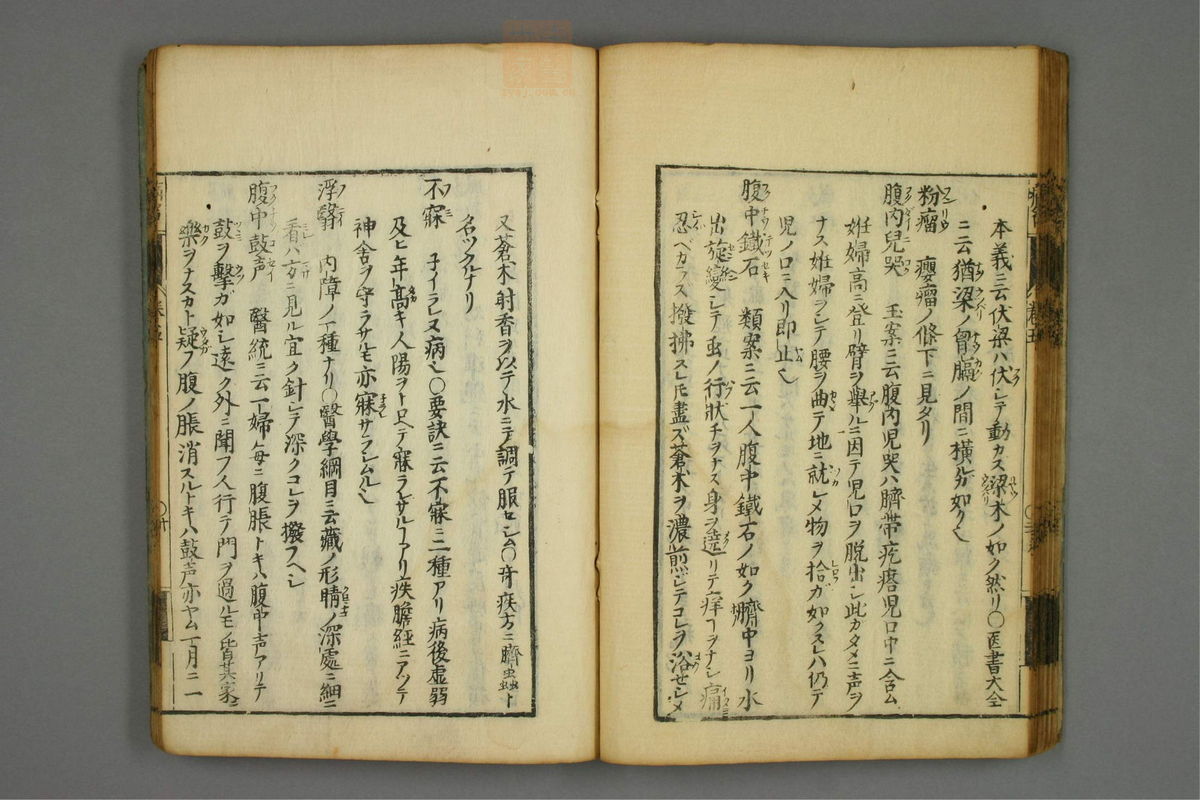 本義ニ云伏梁ハ伏シテ動カス梁木ノ如ク然リ〇医書大全
ニ云猶梁ノ膈ノ間ニ横ルガ如クヽ
粉瘤 癭瘤ノ條下ニ見タリ
腹内兒哭 玉案ニ云腹内児哭ハ臍帯疙瘩児口中ニ含ム
姙婦高ニ登リ臂ヲ舉ルニ因テ児口ヲ脱出シ此カタメニ声ヲ
ナス姙婦ヲシテ腰ヲ曲テ地ニ就シメ物ヲ拾ガ如クスレハ仍テ
児ノ口ニ入リ即止ム
腹中鐵石 類案ニ云一人腹中鐵石ノ如ク臍中ヨリ水
出旋シテ虫ノ行狀チヲナス身ヲ遶リテ痒ヿヲナシ痛
忍ベカラズ撥拂スレ𪜈盡ズ蒼木ヲ濃煎シテコレヲ浴セシメ
又蒼木射香ヲ以テ水ニテ調テ服セシム〇奇疾方ニ臍虫ト
名ツクルナリ
不寐 子イラレヌ病〇要訣ニ云不寐ニ二種アリ病後虚弱
及ヒ年高キ人陽ヲトロヘテ寐ラレザルヿアリ痰膽經ニアツテ
神舎ヲ守ラサルモ亦寐サラシムル
浮翳 内障ノ一種ナリ〇醫學綱目ニ云藏ノ形睛ノ深處ニ細ニ
看ハ方ニ見ル宜ク針シテ深クコレヲ撥フヘシ
腹中鼓声 醫統ニ云一婦毎ニ腹脹トキハ腹中声アリテ
鼓ヲ擊ガ如シ遠ク外ニ聞フ人行テ門ヲ過ルモノ皆其家ニ
樂ヲナスカト疑フ腹ノ脹消スルトキハ鼓声亦ヤム一月ニ一